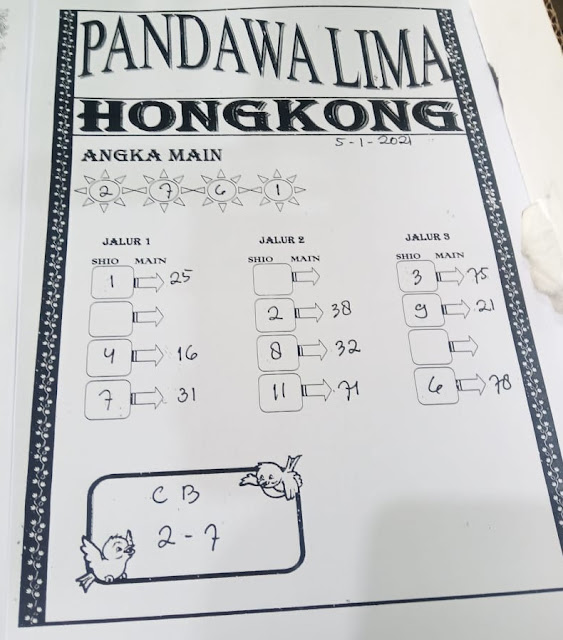 PANDAWA LIMA
HONGKONG
5-1-2021
ANGKA MAIN
2 7 6 1
JALUR 1
SHIO MAIN
1 25
4 16
7 31
JALUR 2
SHIO MAIN
2 38
8 32
11 71
JALUR 3
SHIO MAIN
3 75
9 21
6 78
CB
2-7